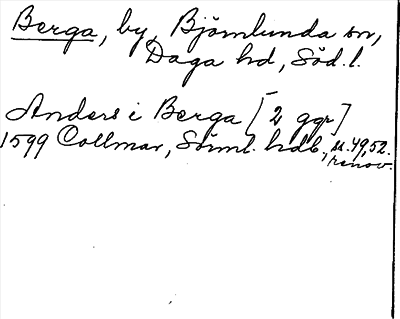 Berga, by, Björnlunda sn,
Daga hd, Söd.l.
Anders i Berga [2 ggr]
1599 Collmar, Sörml. hdb, s. 49, 52.
renov.